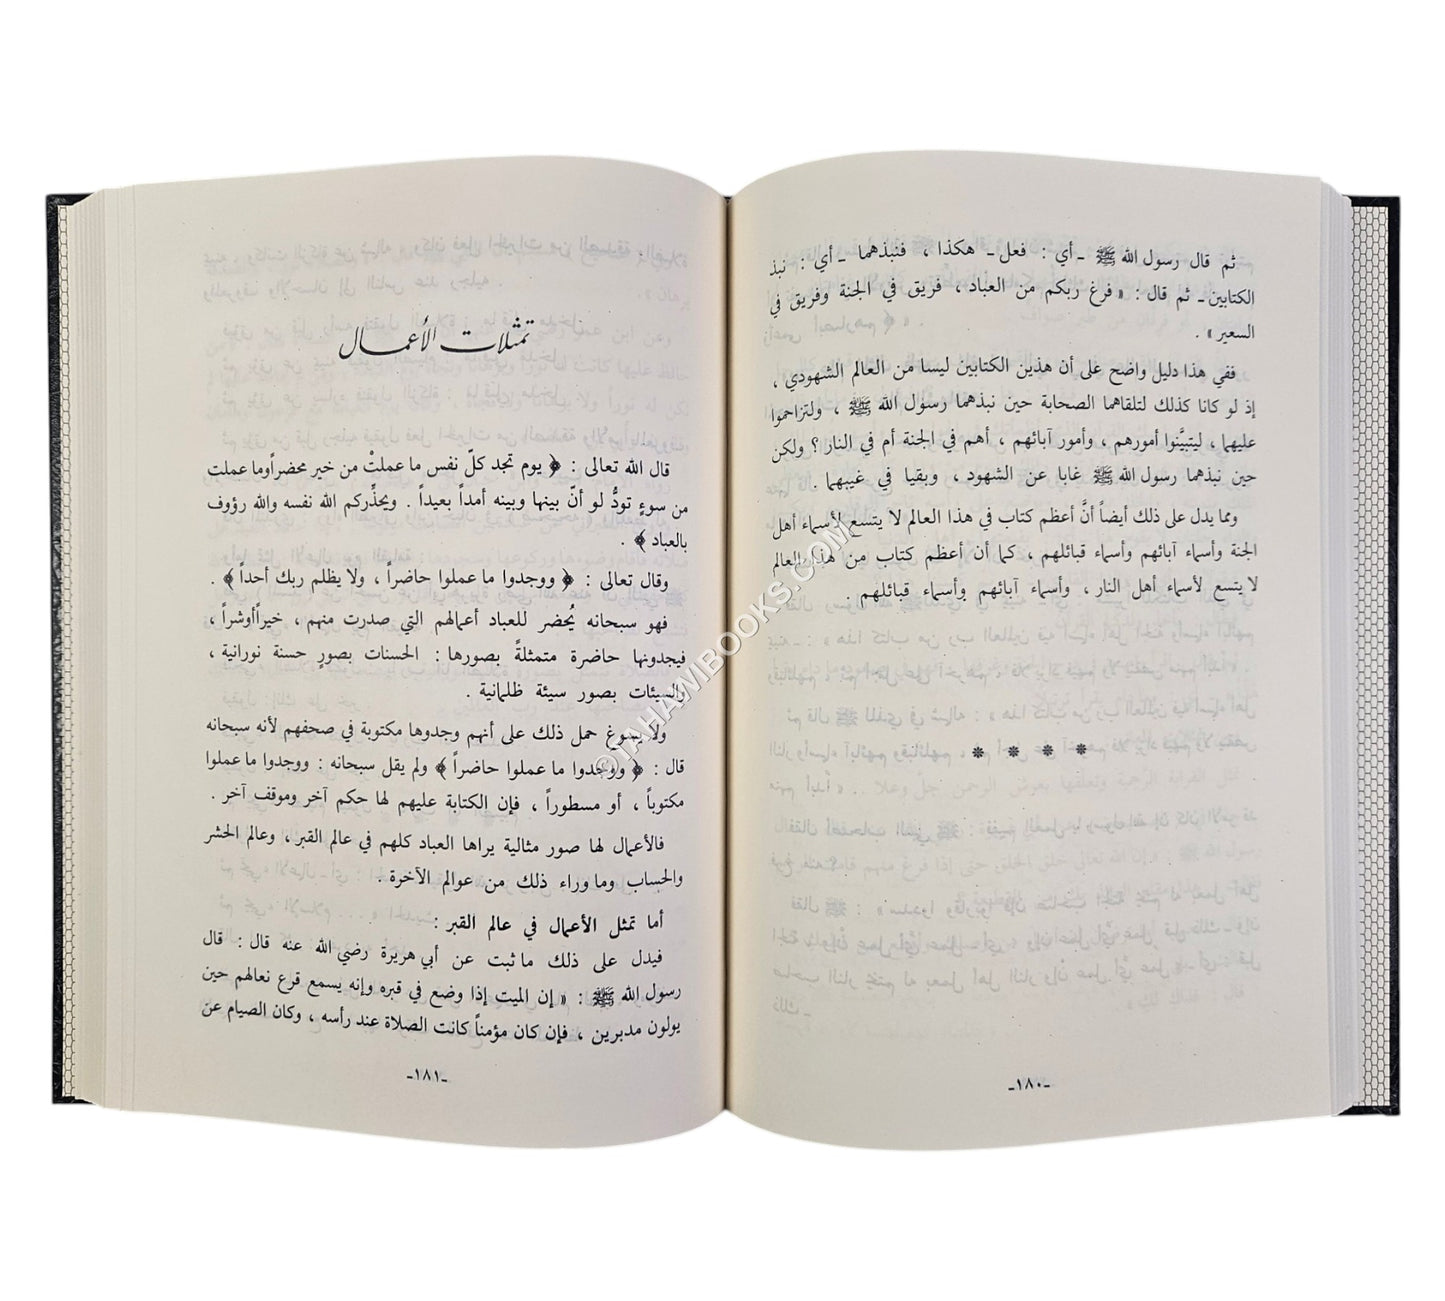 ثم قال رسول الله ﷺ ـ أي : فعل ـ هكذا ، فنبذهما ـ أي : نبذ
الكتابين ـ ثم قال : « فرغ ربكم من العباد ، فريق في الجنة وفريق في
السعير » .
ففي هذا دليل واضح على أن هذين الكتابين ليسا من العالم الشهودي ،
إذ لو كانا كذلك لتلقاهما الصحابة حين نبذهما رسول الله ﷺ ، ولتزاحموا
عليهما ، ليتبيَّنوا أمورهم ، وأمور آبائهم ، أهم في الجنة أم في النار ؟ ولكن
حين نبذهما رسول الله ﷺ غابا عن الشهود ، وبقيا في غيبهما .
ومما يدل على ذلك أيضاً أنَّ أعظم كتاب في هذا العالم لا يتسع لأسماء أهل
الجنة وأسماء آبائهم وأسماء قبائلهم ، كما أن أعظم كتاب من هذا العالم
لا يتسع لأسماء أهل النار ، وأسماء آبائهم وأسماء قبائلهم .
* * * *
ـ١٨٠ـ
تمثلات الأعمال
قال الله تعالى : ﴿ يوم تجد كلّ نفس ما عملتْ من خير محضراً وما عملت
من سوءٍ تودُّ لو أنّ بينها وبينه أمداً بعيداً . ويحذِّركم الله نفسه والله رؤوف
بالعباد ﴾ .
وقال تعالى : ﴿ ووجدوا ما عملوا حاضراً ، ولا يظلم ربك أحداً ﴾ .
فهو سبحانه يُحضر للعباد أعمالهم التي صدرت منهم ، خيراً أو شراً ،
فيجدونها حاضرة متمثلةً بصورها : الحسنات بصورٍ حسنة نورانية ،
والسيئات بصور سيئة ظلمانية .
ولا يسوغ حمل ذلك على أنهم وجدوها مكتوبة في صحفهم لأنه سبحانه
قال : ﴿ ووجدوا ما عملوا حاضراً ﴾ ولم يقل سبحانه : ووجدوا ما عملوا
مكتوباً ، أو مسطوراً ، فإن الكتابة عليهم لها حكم آخر وموقف آخر .
فالأعمال لها صور مثالية يراها العباد كلهم في عالم القبر ، وعالم الحشر
والحساب وما وراء ذلك من عوالم الآخرة .
أما تمثل الأعمال في عالم القبر :
فيدل على ذلك ما ثبت عن أبي هريرة رضي الله عنه قال : قال
رسول الله ﷺ : « إن الميت إذا وضع في قبره وإنه يسمع قرع نعالهم حين
يولون مدبرين ، فإن كان مؤمناً كانت الصلاة عند رأسه ، وكان الصيام عن
ـ١٨١ـ
©TAHAMIBOOKS.COM